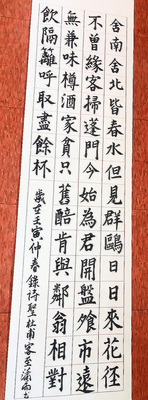 舍南舍北皆春水但見群鷗日日來花徑
不曾緣客掃蓬門今始為君開盤飧市遠
無兼味樽酒家貧只舊醅肯與鄰翁相對
飲隔籬呼取盡餘杯 歲在壬寅仲春錄詩聖杜甫客至瀟雨书